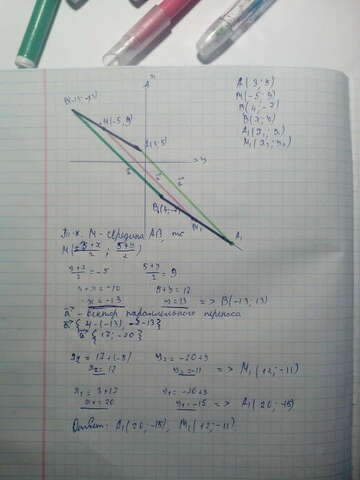 y
B(-13; 13)
M(-5; 9)
A(3; 5)
x
a
a
a
B₁(4; -7)
M₁
A₁
A(3; 5)
M(-5; 9)
B₁(4; -7)
B(x; y)
A₁(x₁; y₁)
M₁(x₂; y₂)
Т.к. M - середина AB, то
M(3+x/2; 5+y/2)
3+x/2 = -5    5+y/2 = 9
3+x = -10    5+y = 18
x = -13    y = 13 => B(-13; 13)
a - вектор параллельного переноса
a{4-(-13); -7-13}
a{17; -20}
x₂ = 17+(-5)    y₂ = -20+9
x₂ = 12    y₂ = -11 => M₁(12; -11)
x₁ = 3+17    y₁ = -20+5
x₁ = 20    y₁ = -15 => A₁(20; -15)
Ответ: A₁(20; -15), M₁(12; -11)